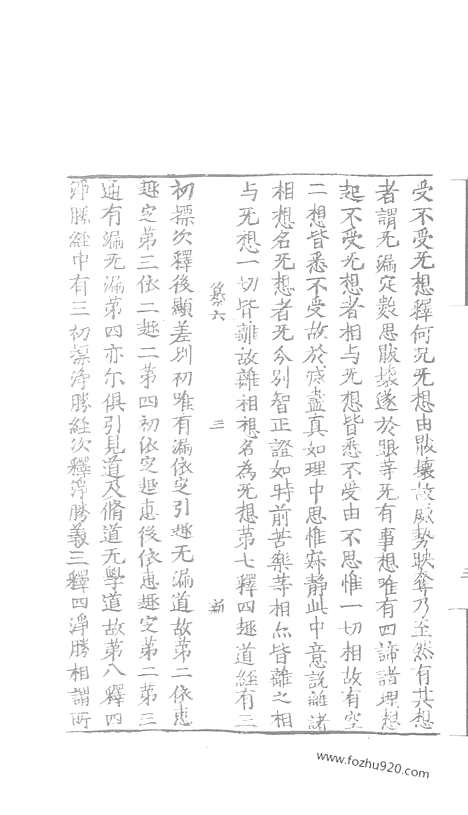 受不受无想釋何况无想由散壞故威勢映奪乃至然有其想
者謂无漏定數思散壞遂於眼等无有事想唯有四諦諸理想
起不受无想者相与无想皆悉不受由不思惟一切相故有空
二想皆悉不受故於寂盡真如理中思惟寂静此中意說離諸
相想名无想者无分别智正證如時前苦樂等相亦皆離之相
与无想一切皆離故離相想名為无想苐七釋四趣道經有三
纂六 三 新
初摽次釋後顯差别初唯有漏依定引趣无漏道故苐二依恵
趣定苐三依二趣二苐四初依定趣恵後依恵趣定苐二苐三
通有漏无漏苐四亦尔俱引見道及脩道无學道故苐八釋四
净勝經中有三初摽净勝經次釋净勝義三釋四净勝相謂所
三
www.fozhu920.com